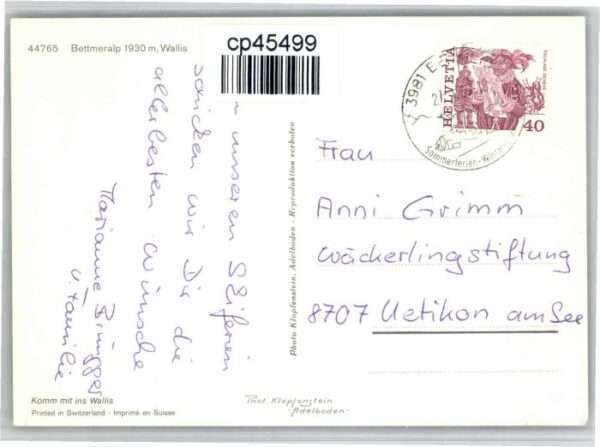 44765 Bettmeralp 1930 m, Wallis
cp45499
3981
HELVETIA
40
Sommerferien -
unseren Skiferien
schicken wir Dir die
allerbesten Wünsche
Marianne
u. Familie
Photo Klopfenstein, Adelboden - Reproduktion verboten
Frau
Anni Grimm
Wäckerlingstiftung
8707 Uetikon am See
Komm mit ins Wallis
Printed in Switzerland - Imprimé en Suisse
Phot Klopfenstein
"Adelboden"